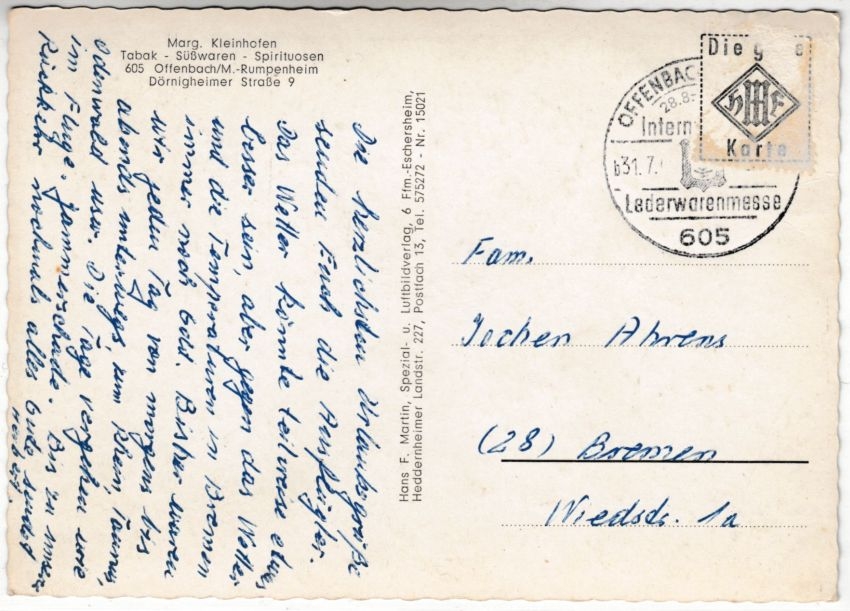 Marg. Kleinhofen
Tabak - Süßwaren - Spirituosen
605 Offenbach/M.-Rumpenheim
Dörnigheimer Straße 9
Die herzlichsten Urlaubsgrüße
senden Euch die Ausflügler.
Das Wetter könnte teilweise etwas
besser sein, aber gegen das Wetter
und die Temperaturen in Bremen
immer noch Gold. Bisher waren
wir jeden Tag von morgens bis
abends unterwegs, zum Rhein, Taunus,
Odenwald usw. Die Tage vergehen wie
im Fluge. Jammerschade. Bis zu unserer
Rückkehr nochmals alles Gute sendet
Hans F. Martin, Spezial- u. Luftbildverlag, 6 Ffm.-Eschersheim,
Heddernheimer Landstr. 227, Postfach 13, Tel. 575272 - Nr. 15021
Die g e
HMF
Karte
OFFENBAC
28.8.-
Intern
b31.7.
Lederwarenmesse
605
Fam.
Jochen Ahrens
(28) Bremen
Wiedstr. 1a